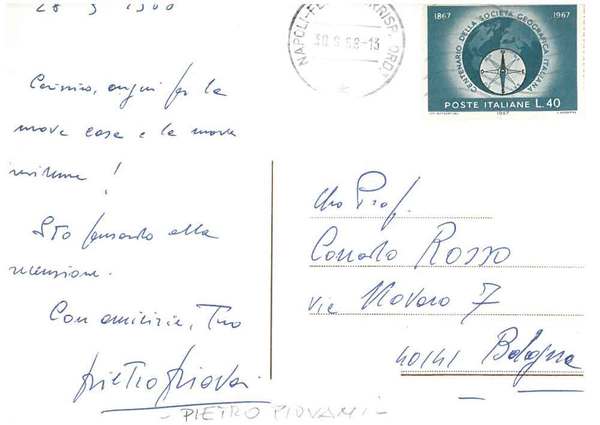 28 3 1968
Carissimo, auguri per la
nuova casa e la nuova
Sto pensando alla
recensione.
Con amicizia, Tuo
Pietro Piovani
- PIETRO PIOVANI -
NAPOLI-FE CORRISP. ORD
30.3.68-13
1867 1967
CENTENARIO DELLA SOCIETÀ GEOGRAFICA ITALIANA
POSTE ITALIANE L.40
1967
Ch.o Prof.
Corrado Rosso
Via Novaro 7
40141 Bologna